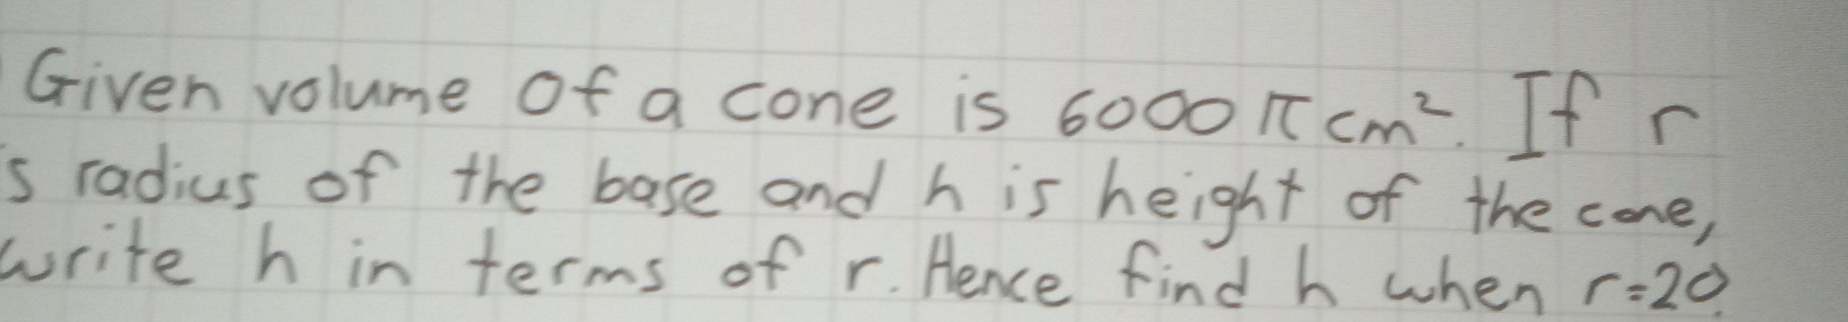 Given volume of a cone is 6000 π cm². If r
s radius of the base and h is height of the cone,
write h in terms of r. Hence find h when r=20.